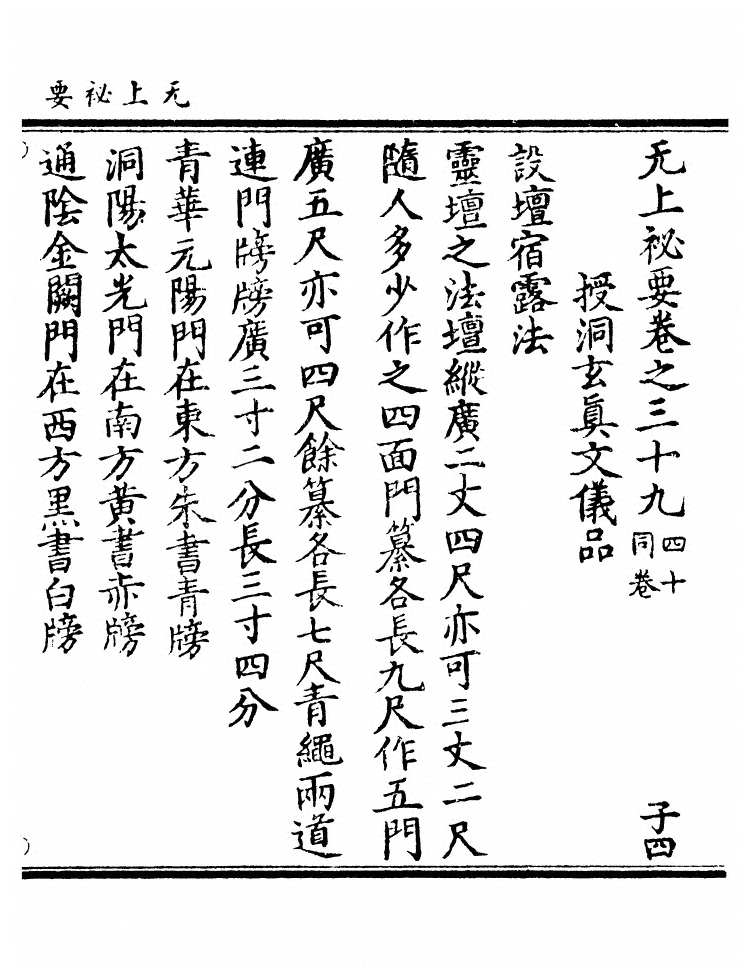 无上祕要
无上祕要卷之三十九 四十同卷 子四
授洞玄眞文儀品
設壇宿露法
靈壇之法壇縱廣二丈四尺亦可三丈二尺
隨人多少作之四面門纂各長九尺作五門
廣五尺亦可四尺餘纂各長七尺青繩兩道
連門牓牓廣三寸二分長三寸四分
青華元陽門在東方朱書青牓
洞陽太光門在南方黃書赤牓
通陰金闕門在西方黑書白牓